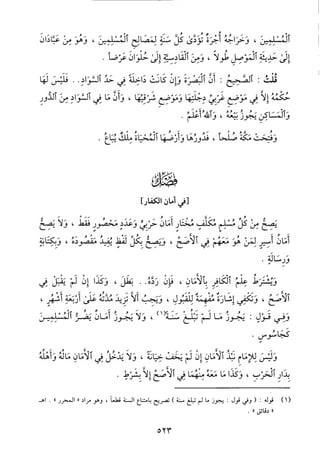 الْمُسْلِمِينَ ، وَخَرَاجُهُ أُجْرَةٌ تُؤَدَّىٰ كُلَّ سَنَةٍ لِمَصَالِحِ الْمُسْلِمِينَ ، وَهُوَ مِنْ عَبَّادَانَ
إِلَىٰ حَدِيثَةِ الْمَوْصِلِ طُولاً ، وَمِنَ الْقَادِسِيَّةِ إِلَىٰ حُلْوَانَ عَرْضاً .
قُلْتُ : الصَّحِيحُ : أَنَّ الْبَصْرَةَ وَإِنْ كَانَتْ دَاخِلَةً فِي حَدِّ السَّوَادِ.. فَلَيْسَ لَهَا
حُكْمُهُ إِلاَّ فِي مَوْضِعٍ غَرْبِيَّ دِجْلَتِهَا وَمَوْضِعٍ شَرْقِيَّهَا ، وَأَنَّ مَا فِي السَّوَادِ مِنَ الدُّورِ
وَالْمَسَاكِنِ يَجُوزُ بَيْعُهُ ، وَاللهُ أَعْلَمُ .
وَفُتِحَتْ مَكَّةُ صُلْحاً ، فَدُورُهَا وَأَرْضُهَا الْمُحْيَاةُ مِلْكٌ يُبَاعُ .
فَصْلٌ
[في أمان الكفار]
يَصِحُّ مِنْ كُلِّ مُسْلِمٍ مُكَلَّفٍ مُخْتَارٍ أَمَانُ حَرْبِيٍّ وَعَدَدٍ مَحْصُورٍ فَقَطْ ، وَلاَ يَصِحُّ
أَمَانُ أَسِيرٍ لِمَنْ هُوَ مَعَهُمْ فِي الأَصَحِّ ، وَيَصِحُّ بِكُلِّ لَفْظٍ يُفِيدُ مَقْصُودَهُ ، وَبِكِتَابَةٍ
وَرِسَالَةٍ .
وَيُشْتَرَطُ عِلْمُ الْكَافِرِ بِالأَمَانِ ، فَإِنْ رَدَّهُ.. بَطَلَ ، وَكَذَا إِنْ لَمْ يَقْبَلْ فِي
الأَصَحِّ ، وَتَكْفِي إِشَارَةٌ مُفْهِمَةٌ لِلْقَبُولِ ، وَيَجِبُ أَلاَّ تَزِيدَ مُدَّتُهُ عَلَىٰ أَرْبَعَةِ أَشْهُرٍ ،
وَفِي قَوْلٍ : يَجُوزُ مَا لَمْ تَبْلُغْ سَنَةً(١) ، وَلاَ يَجُوزُ أَمَانٌ يَضُرُّ الْمُسْلِمِينَ
كَجَاسُوسٍ .
وَلَيْسَ لِلإِمَامِ نَبْذُ الأَمَانِ إِنْ لَمْ يَخَفْ خِيَانَةً ، وَلاَ يَدْخُلُ فِي الأَمَانِ مَالُهُ وَأَهْلُهُ
بِدَارِ الْحَرْبِ ، وَكَذَا مَا مَعَهُ مِنْهُمَا فِي الأَصَحِّ إِلاَّ بِشَرْطٍ .
(١) قوله : ( وفي قول : يجوز ما لم تبلغ سنة ) تصريح بامتناع السنة قطعاً ، وهو مراد « المحرر » . اهـ
« دقائق » .
٥٢٣